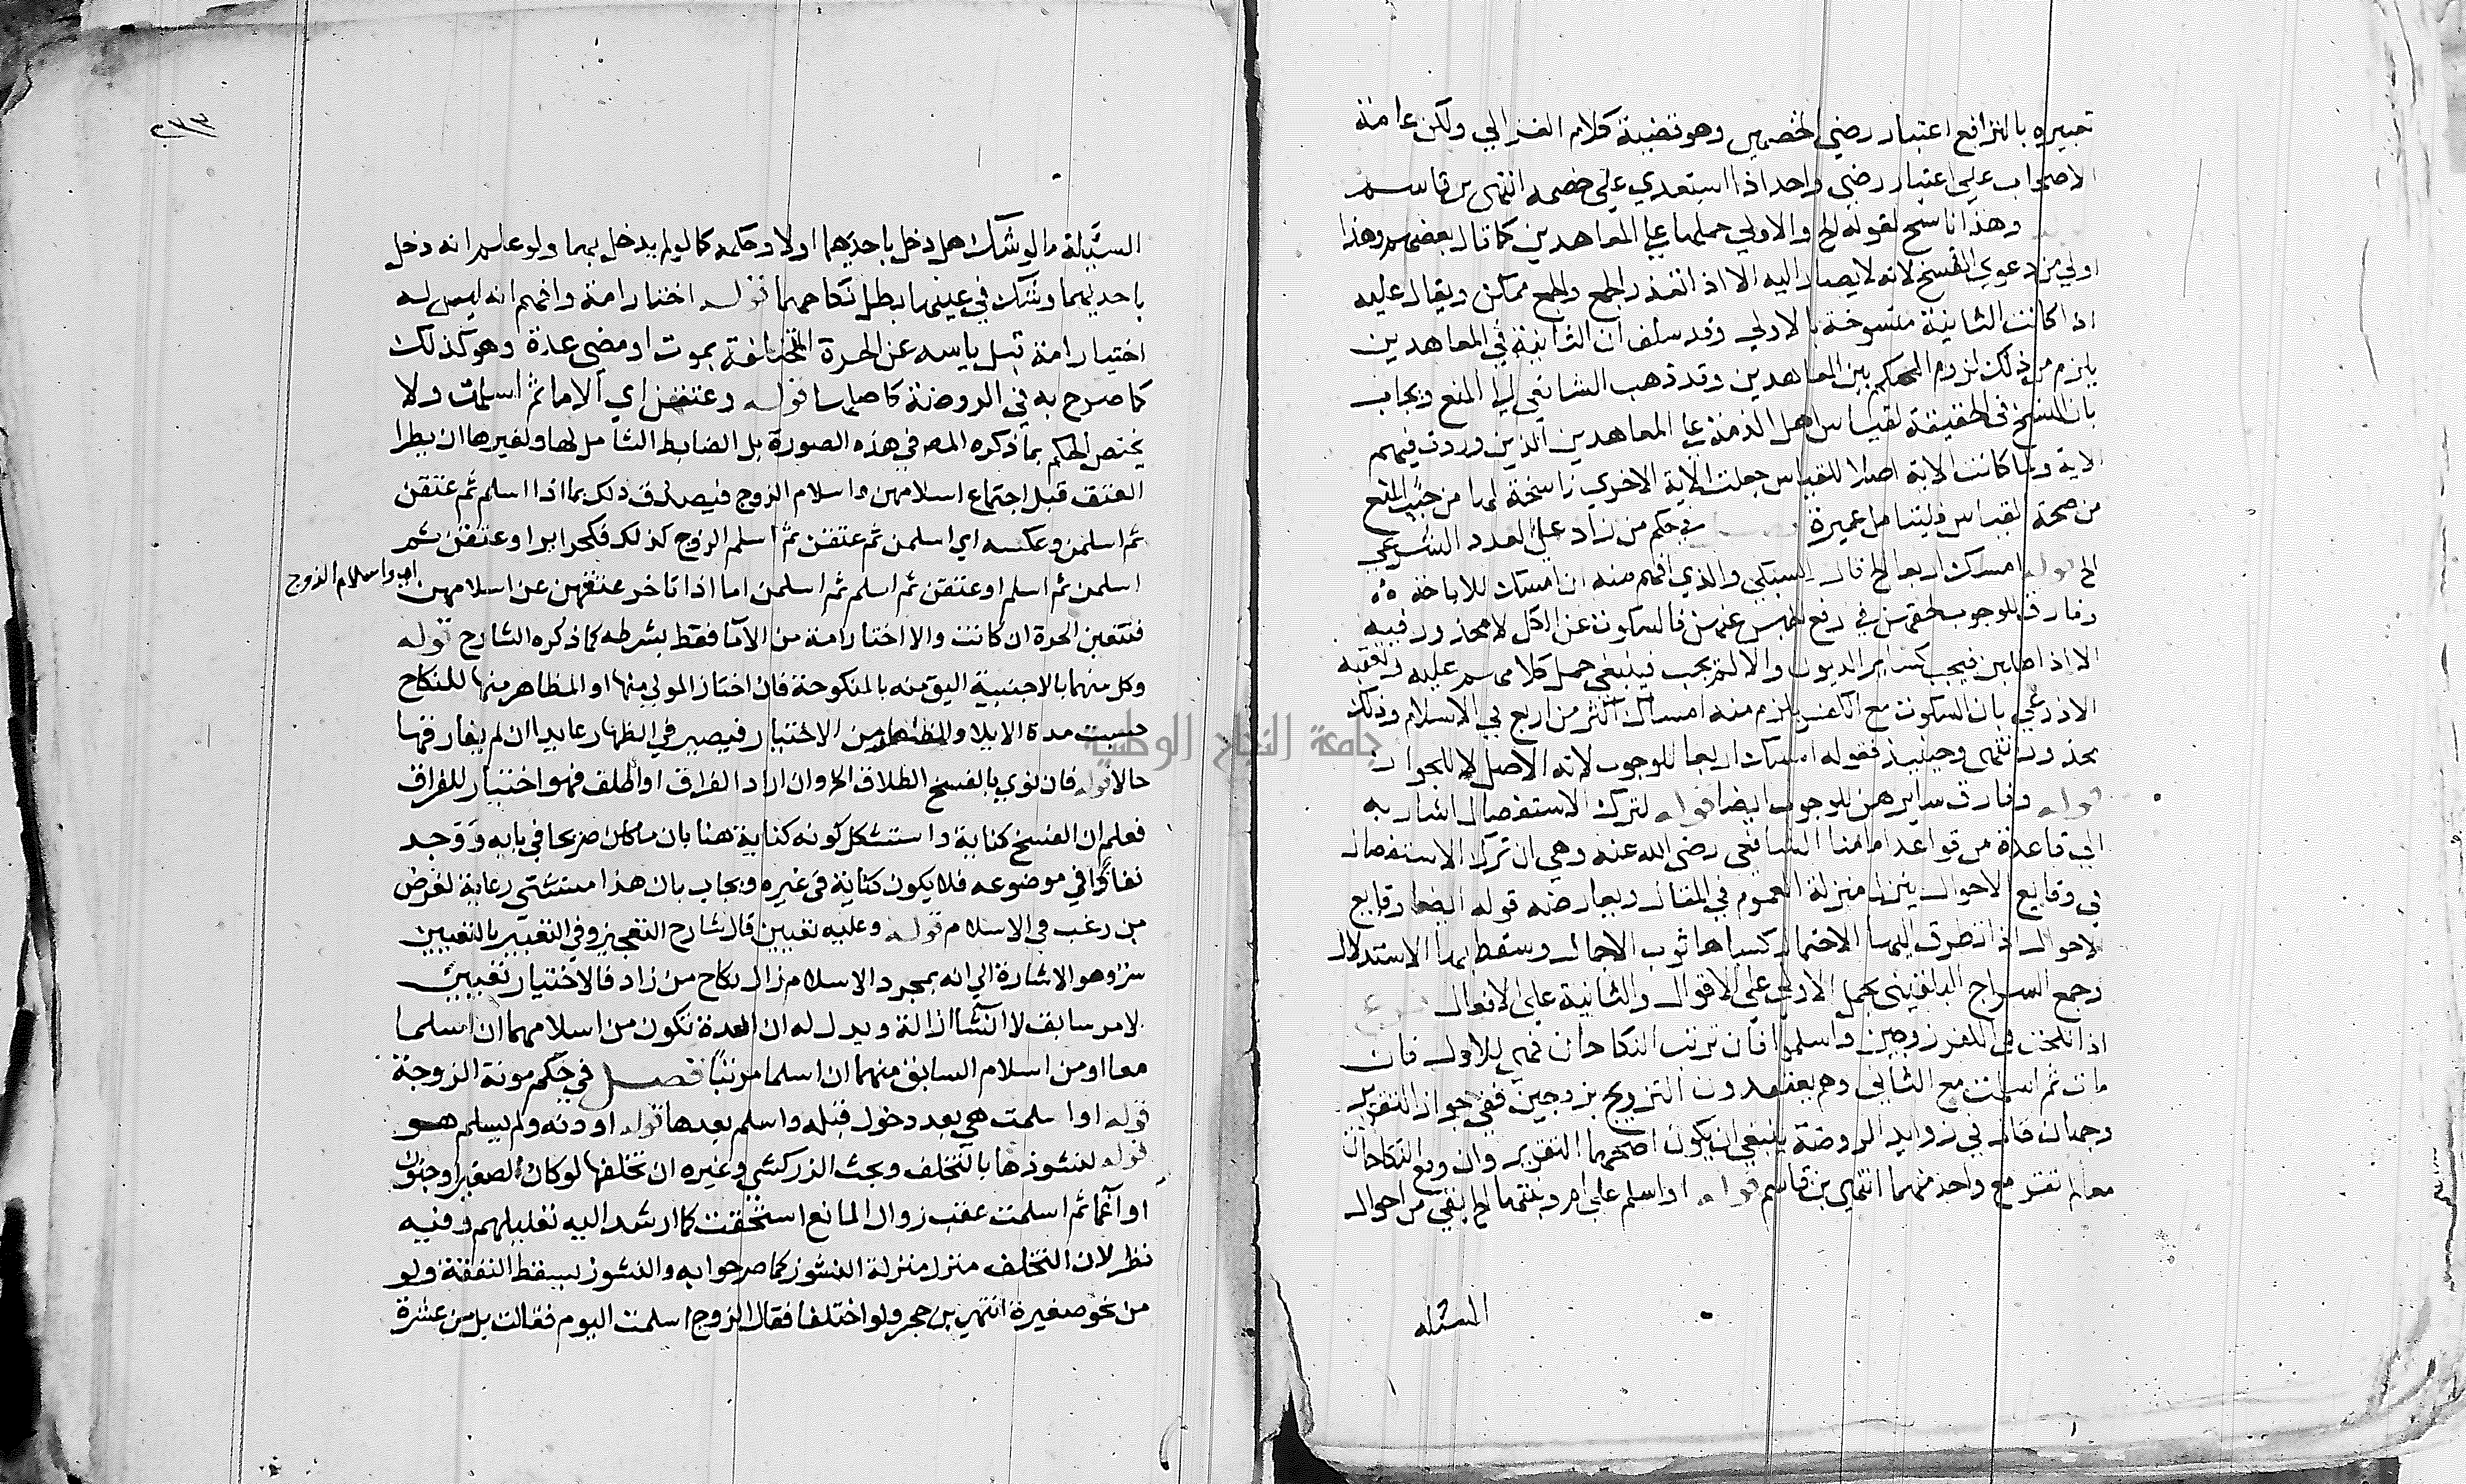 تعبيره بالترافع اعتبار رضي الخصمين وهو قضية كلام الغزالي ولكن عامة
الاصحاب علي اعتبار رضي واحد اذا استعدي علي خصمه انتهى بن قاسم
وهذا ناسخ لقوله الخ والاولي حملها علي المعاهدين كما قال بعضهم وهذا
اولي من دعوي الفسخ لانه لا يصار اليه الا اذا تعذر الجمع والجمع ممكن ويقال عليه
اذا كانت الثانية منسوخة بالاولي وقد سلف ان الثانية في المعاهدين
يلزم من ذلك لزوم الحكم بين المعاهدين وقد ذهب الشافعي الي المنع ويجاب
بان النسخ في الحقيقة لقياس اهل الذمة علي المعاهدين الذين وردت فيهم
الاية ولما كانت الاية اصلا للقياس جعلت الاية الاخري ناسخة لها من حيث المنع
من صحة القياس فليتامل عميرة في حكم من زاد علي العدد الشرعي
الخ قوله امسك اربعا الخ قال السبكي والذي افهم منه ان امسك للاباحة
وفارق للوجوب لحقهن في رفع الحبس عنهن فالسكوت عن الكل لا محذور فيه
الا اذا طلبن فيجب كساير الديون والا لم يجب فينبغي حمل كلامهم عليه وتعقبه
الاذرعي بان السكوت مع الكف يلزم منه امساك اكثر من اربع في الاسلام وذلك
محذور انتهى وحينيذ فقوله امسك اربعا للوجوب لانه الاصل لا للجواز
قوله وفارق سايرهن للوجوب ايضا قوله لترك الاستفصال اشار به
الي قاعدة من قواعد امامنا الشافعي رضي الله عنه وهي ان ترك الاستفصال
في وقايع الاحوال ينزل منزلة العموم في المقال ويعارضه قوله ايضا وقايع
الاحوال اذا تطرق اليها الاحتمال كساها ثوب الاجمال وسقط بها الاستدلال
وجمع السراج البلقيني بحمل الاولي علي الاقوال والثانية علي الافعال فرع
اذا نكحت في الكفر زوجين واسلموا فان ترتب النكاحان فهي للاول فان
مات ثم اسلمت مع الثاني وهم يعتقدون التزويج بزوجين ففي جواز التقرير
وجهان قال في زوايد الروضة ينبغي ان يكون اصحهما التقرير وان وقع النكاحان
معا لم تقر مع واحد منهما انتهى بن قاسم قوله او اسلم علي ام وبنتها الخ بقي من احوال
المسئلة
٢٧٣
المسئلة ما لو شك هل دخل باحديهما او لا وحكمه كما لو لم يدخل بهما ولو علم انه دخل
باحديهما وشك في عينها بطل نكاحهما قوله اختار امة وافهم انه ليس له
اختيار امة قبل ياسه عن الحرة المتخلفة بموت او مضي عدة وهو كذلك
كما صرح به في الروضة كاصلها قوله وعتقن اي الاما ثم اسلمت ولا
يختص الحكم بما ذكره المص في هذه الصورة بل الضابط الشامل لها ولغيرها ان يطرا
العتق قبل اجتماع اسلامهن واسلام الزوج فيصدق ذلك بما اذا اسلم ثم عتقن
ثم اسلمن وعكسه اي اسلمن ثم عتقن ثم اسلم الزوج كذلك فكحراير او عتقن ثم
اسلمن ثم اسلم او عتقن ثم اسلم ثم اسلمن اما اذا تاخر عتقهن عن اسلامهن اي واسلام الزوج
فتتعين الحرة ان كانت والا اختار امة من الاما فقط بشرطه كما ذكره الشارح قوله
وكل منهما بالاجنبية اليق منه بالمنكوحة فان اختار المولي منها او المظاهر منها للنكاح
حسبت مدة الايلا والظهار من الاختيار فيصير في الظهار عايدا ان لم يفارقها
حالا قوله فان نوي بالفسخ الطلاق الخ وان اراد الفراق او اطلق فهو اختيار للفراق
فعلم ان الفسخ كناية واستشكل كونه كناية هنا بان ما كان صريحا في بابه ووجد
نفاذا في موضوعه فلا يكون كناية في غيره ويجاب بان هذا مستثني رعاية لغرض
من رغب في الاسلام قوله وعليه تعيين قال شارح التعجيز وفي التعبير بالتعيين
سر وهو الاشارة الي انه بمجرد الاسلام زال نكاح من زاد فالاختيار تعيين
لامر سابق لا انشا ازالة ويدل له ان العدة تكون من اسلامهما ان اسلما
معا او من اسلام السابق منهما ان اسلما مرتبا فصل في حكم مونة الزوجة
قوله او اسلمت هي بعد دخول قبله واسلم بعدها قوله او دونه ولم يسلم هو
قوله لنشوزها بالتخلف وبحث الزركشي وغيره ان تخلفها لو كان لصغر او جنون
او اغما ثم اسلمت عقب زوال المانع استحقت كما ارشد اليه تعليلهم وفيه
نظر لان التخلف منزل منزلة النشوز كما صرحوا به والنشوز يسقط النفقة ولو
من نحو صغيرة انتهى بن حجر ولو اختلفا فقال الزوج اسلمت اليوم فقالت بل من عشرة
جامعة النجاح الوطنية